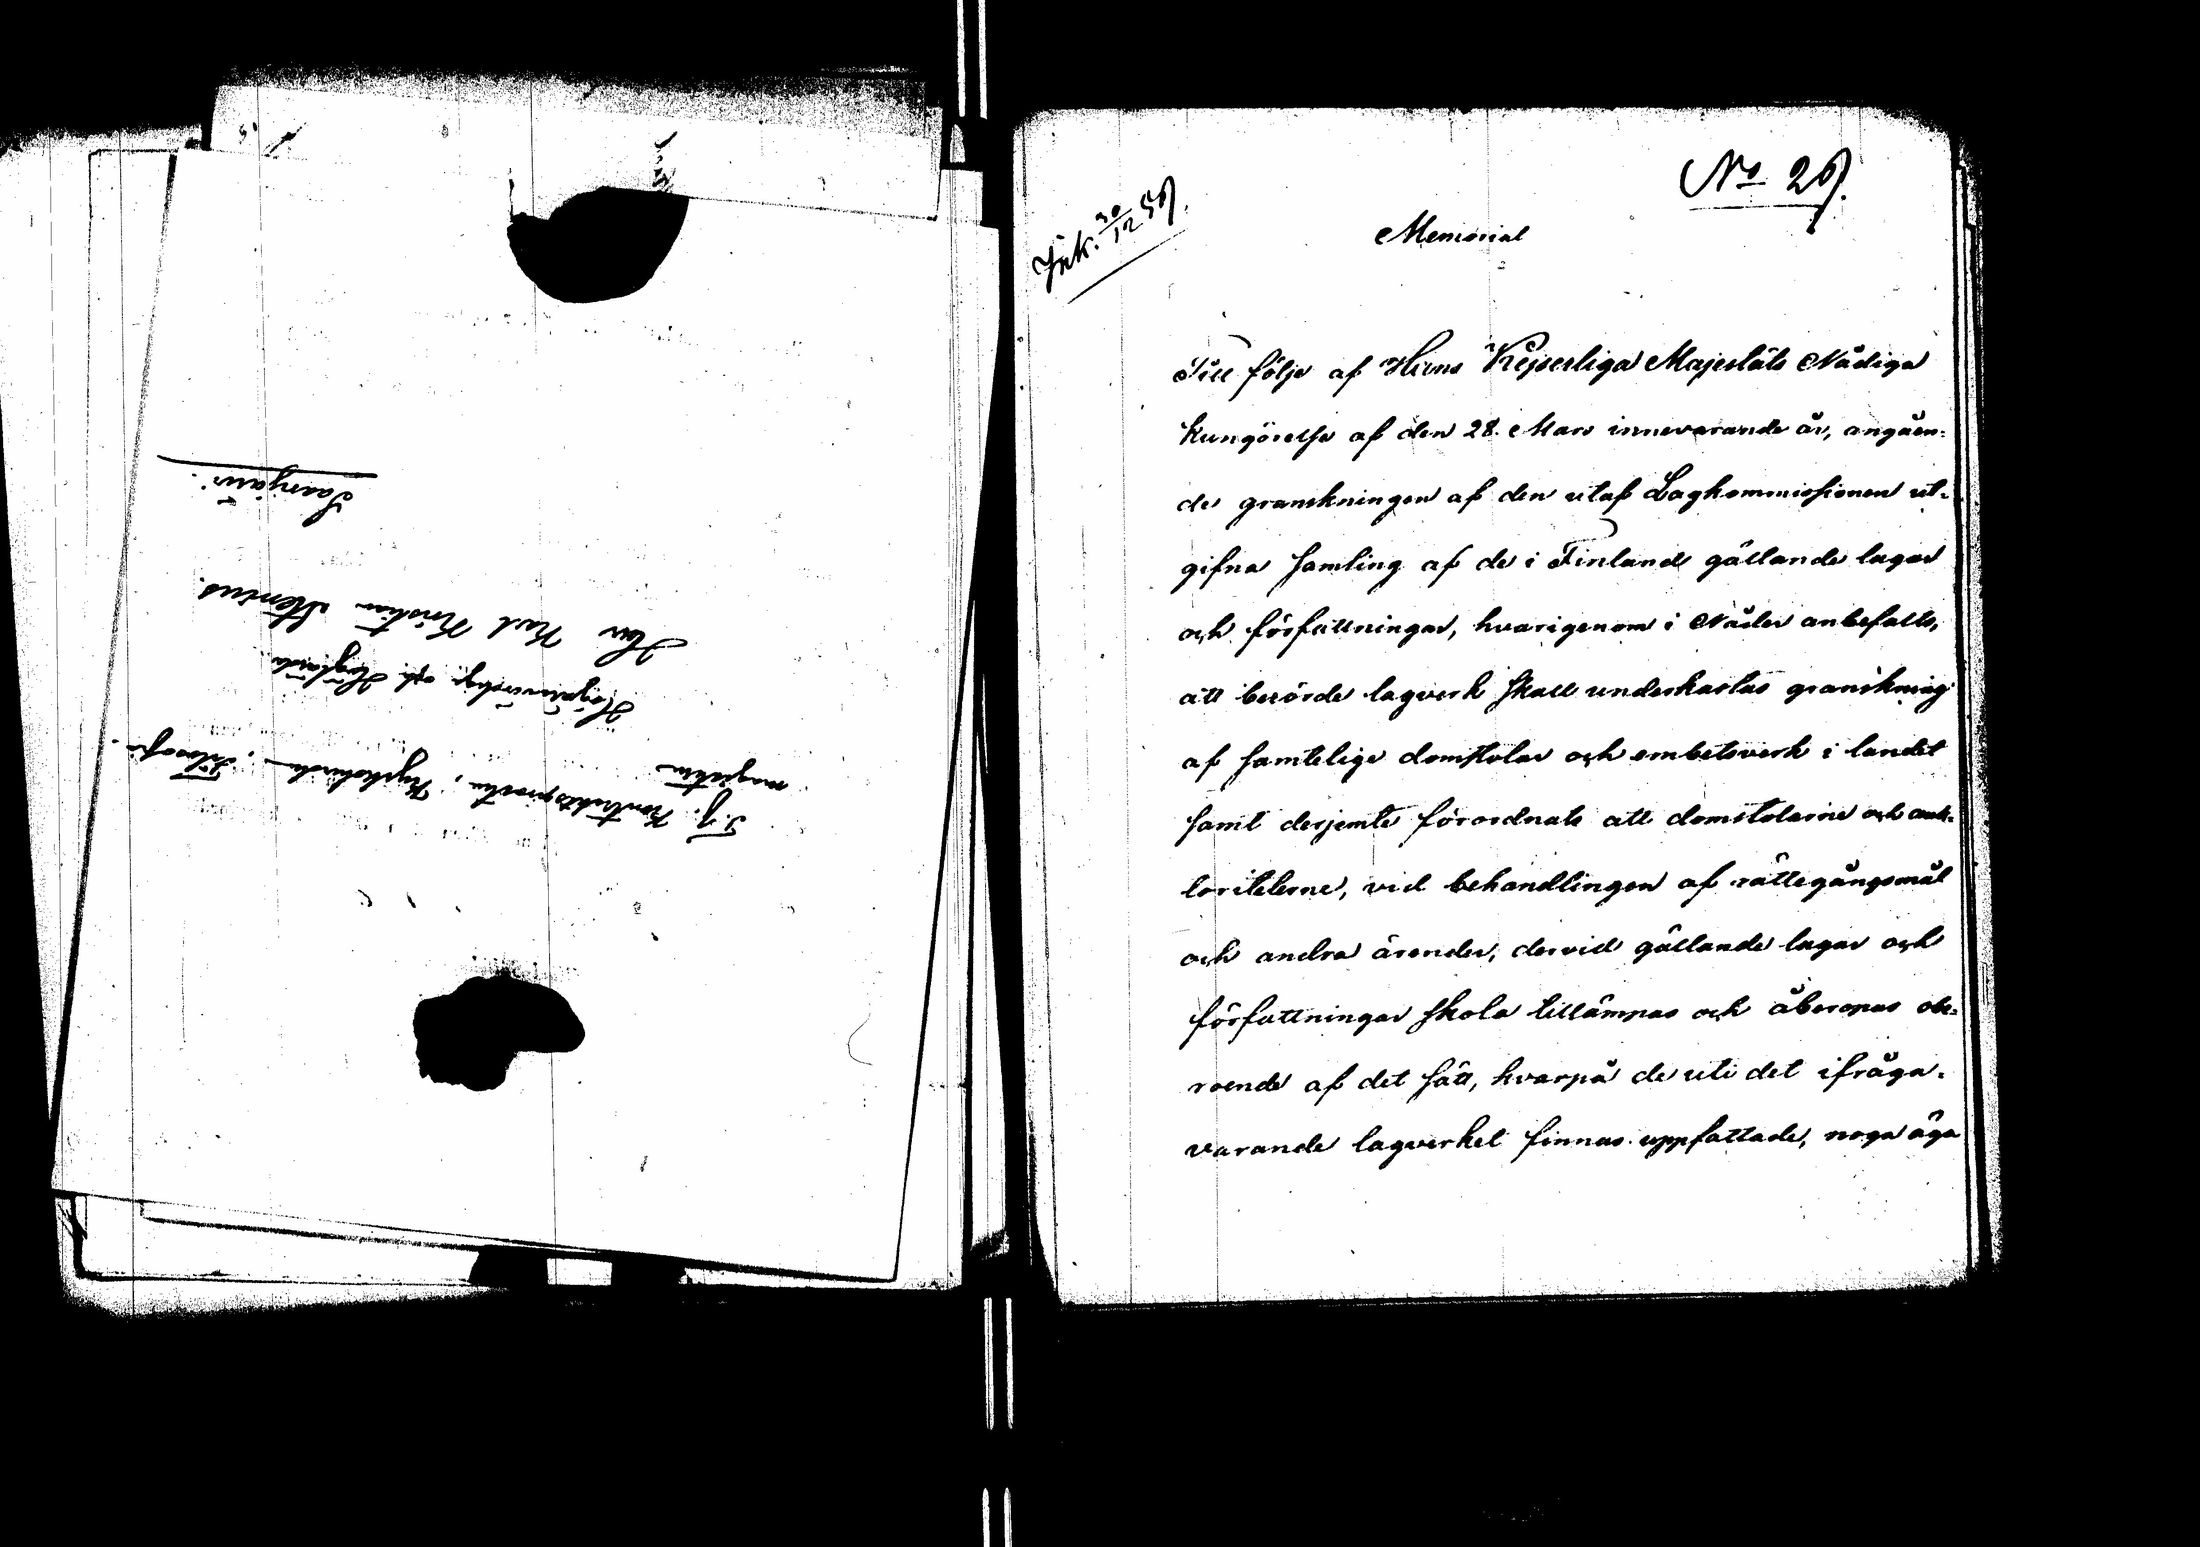 T. f. Kontraktsprosten, Kyrkoherden, Filosofie-
magistern
Högvälärevördige och Höglärde
Herr Karl Kristian Stenius.
Saarijärvi.
Ink. 30/12 59.
No 29.
Memorial
Till följe af Hans Kejserliga Majestäts Nådiga
Kungörelse af den 28. Mars innevarande år, angåen-
de granskningen af den utaf Lagkommissionen ut-
gifna samling af de i Finland gällande lagar
och författningar, hvarigenom i Nåder anbefalts,
att berörde lagverk skall underkastas granskning
af samtelige domstolar och embetsverk i landet
samt derjemte förordnats att domstolarne och auk-
toriteterne, vid behandlingen af rättegångsmål
och andra ärender, dervid gällande lagar och
författningar skola tillämpas och åberopas obe-
roende af det sätt, hvarpå de uti det ifråga-
varande lagverket finnas uppfattade, noga äga